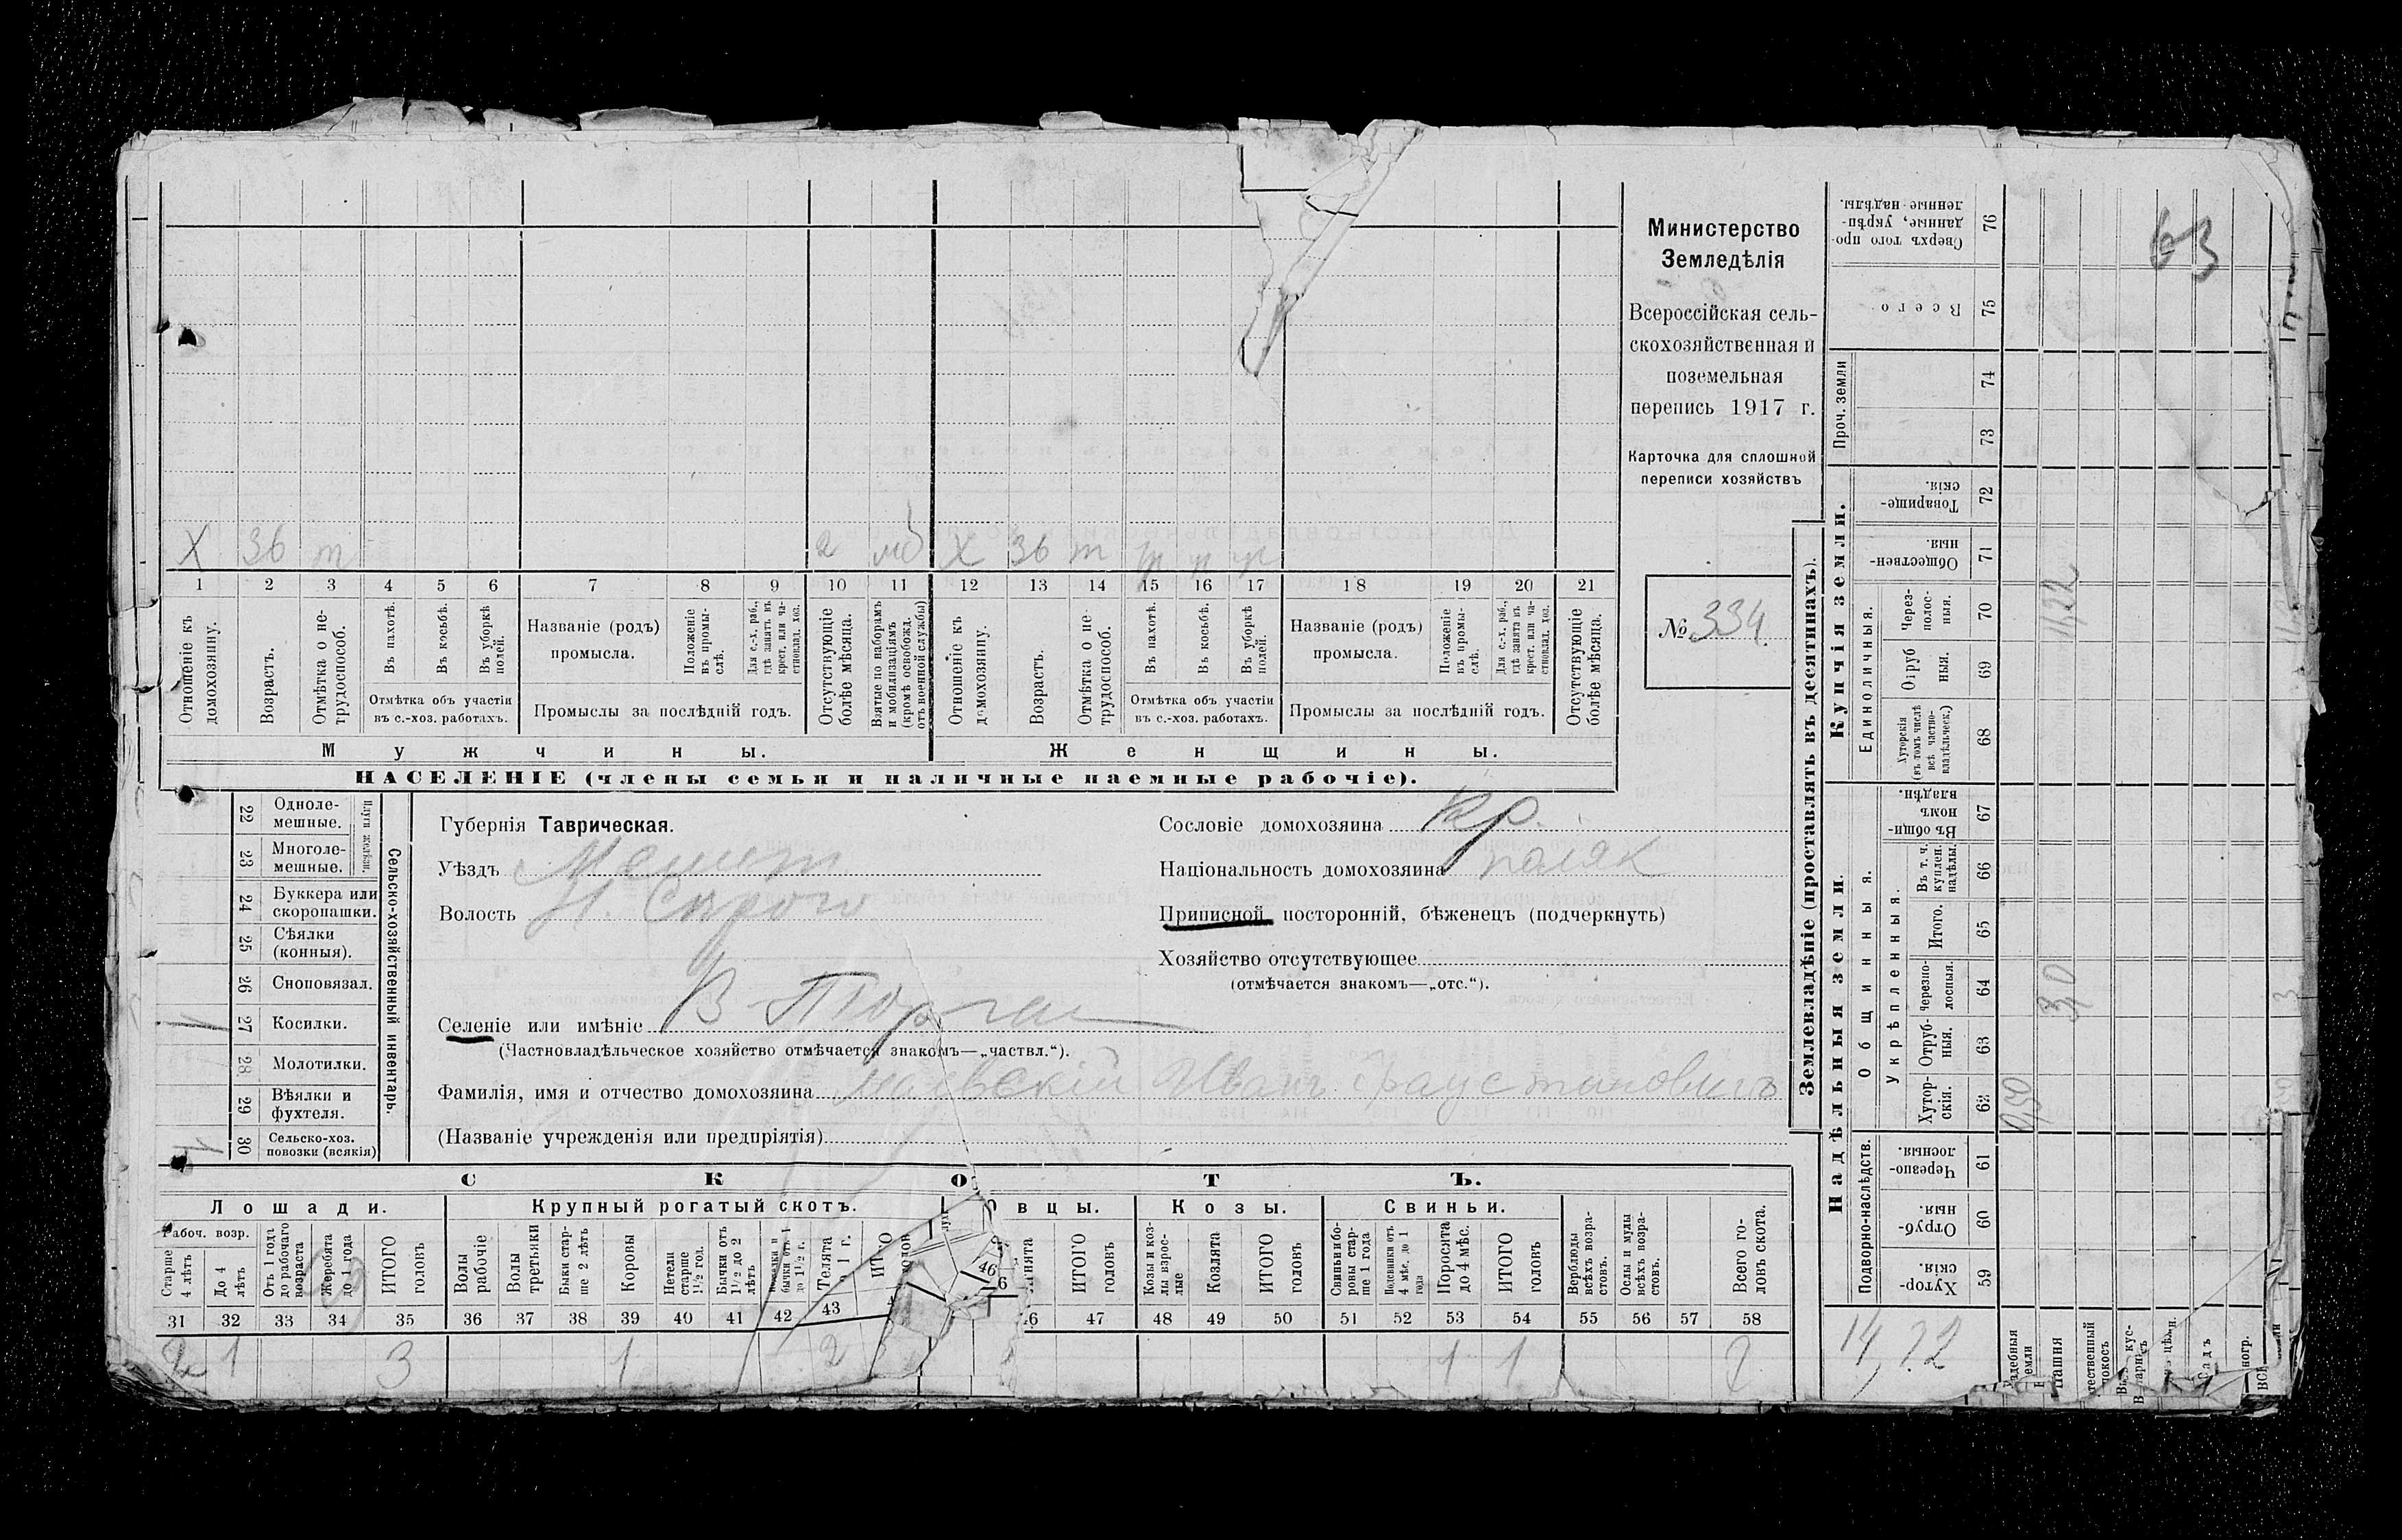 Министерство
Земледѣлія
Всероссійская сель-
скохозяйственная и
поземельная
перепись 1917 г.
Карточка для сплошной
переписи хозяйствъ
№ 334
X 36 т 2 мб X 36 т
1 2 3 4 5 6 7 8 9 10 11 12 13 14 15 16 17 18 19 20 21
Отношеніе къ домохозяину.
Возрастъ.
Отмѣтка о не-трудоспособ.
Въ пахотѣ.
Въ косьбѣ.
Въ уборкѣ полей.
Отмѣтка объ участіи
въ с.-хоз. работахъ.
Названіе (родъ)
промысла.
Положеніе въ промы-слѣ.
Для с.-х. раб., гдѣ занятъ въ крест. или ча-стновлад. хоз.
Промыслы за послѣдній годъ.
Отсутствующіе болѣе мѣсяца.
Взятые по наборамъ и мобилизаціямъ (кромѣ освобожд. отъ военной службы)
Отношеніе къ домохозяину.
Возрастъ.
Отмѣтка о не-трудоспособ.
Въ пахотѣ.
Въ косьбѣ.
Въ уборкѣ полей.
Отмѣтка объ участіи
въ с.-хоз. работахъ.
Названіе (родъ)
промысла.
Положеніе въ промы-слѣ.
Для с.-х. раб., гдѣ занята въ крест. или ча-стновлад. хоз.
Промыслы за послѣдній годъ.
Отсутствующіе болѣе мѣсяца.
Мужчины. Женщины.
НАСЕЛЕНІЕ (члены семьи и наличные наемные рабочіе).
Сельско-хозяйственный инвентарь.
Плуги желѣзн.
22 Одноле-мешные.
23 Многоле-мешные.
24 Буккера или скоропашки.
25 Сѣялки (конныя).
26 Сноповязал.
27 Косилки. 1
28 Молотилки.
29 Вѣялки и фухтеля.
30 Сельско-хоз. повозки (всякія) 1
Губернія Таврическая.
Уѣздъ Мелит
Волость Н. Сирого
Селеніе или имѣніе В-Торгаи
(Частновладѣльческое хозяйство отмѣчается знакомъ—„частвл.“).
Фамилія, имя и отчество домохозяина Маевскій Иванъ Фаустиновичъ
(Названіе учрежденія или предпріятія)
Сословіе домохозяина кр.
Національность домохозяина поляк
Приписной посторонній, бѣженецъ (подчеркнуть)
Хозяйство отсутствующее
(отмѣчается знакомъ—„отс.“).
СКОТЪ.
Лошади. Крупный рогатый скотъ. Овцы. Козы. Свиньи.
Рабоч. возр.
Старше 4 лѣтъ
До 4 лѣтъ
Отъ 1 года до рабочаго возраста
Жеребята до 1 года
ИТОГО головъ
Волы рабочіе
Волы третьяки
Быки стар-ше 2 лѣтъ
Коровы
Нетели старше 1½ год.
Бычки отъ 1½ до 2 лѣтъ
бычки отъ 1 до 1½ г.
Телята 1 г.
ИТОГО
ИТОГО головъ
Козы и коз-лы взрос-лые
Козлята
ИТОГО головъ
Свиньи и бо-ровы стар-ше 1 года
Подсвинки отъ 4 мѣс. до 1 года
Поросята до 4 мѣс.
ИТОГО головъ
Верблюды всѣхъ возра-стовъ.
Ослы и мулы всѣхъ возра-стовъ.
Всего го-ловъ скота.
31 32 33 34 35 36 37 38 39 40 41 42 43 46 47 48 49 50 51 52 53 54 55 56 57 58
2 1 3 1 2 1 1
Землевладѣніе (проставлять въ десятинахъ).
Надѣльныя земли. Купчія земли.
Подворно-наслѣдств.
Общинныя.
Укрѣпленныя.
Единоличныя.
Проч. земли
59 Хутор-скія.
60 Отруб-ныя.
61 Черезпо-лосныя.
62 Хутор-скія. 0,50
63 Отруб-ныя.
64 Черезпо-лосныя. 3,0
65 Итого.
66 Въ т. ч. куплен. надѣлы.
67 Въ общи-номъ владѣн.
68 Хуторскія (въ томъ числѣ всѣ частно-владѣльческ.)
69 Отруб ныя.
70 Через-полос-ныя. 11,22
71 Обществен-ныя.
72 Товарище-скія.
73
74
75 Всего
76 Сверхъ того про-данные, укрѣп-ленные надѣлы.
63
14,72
пашня